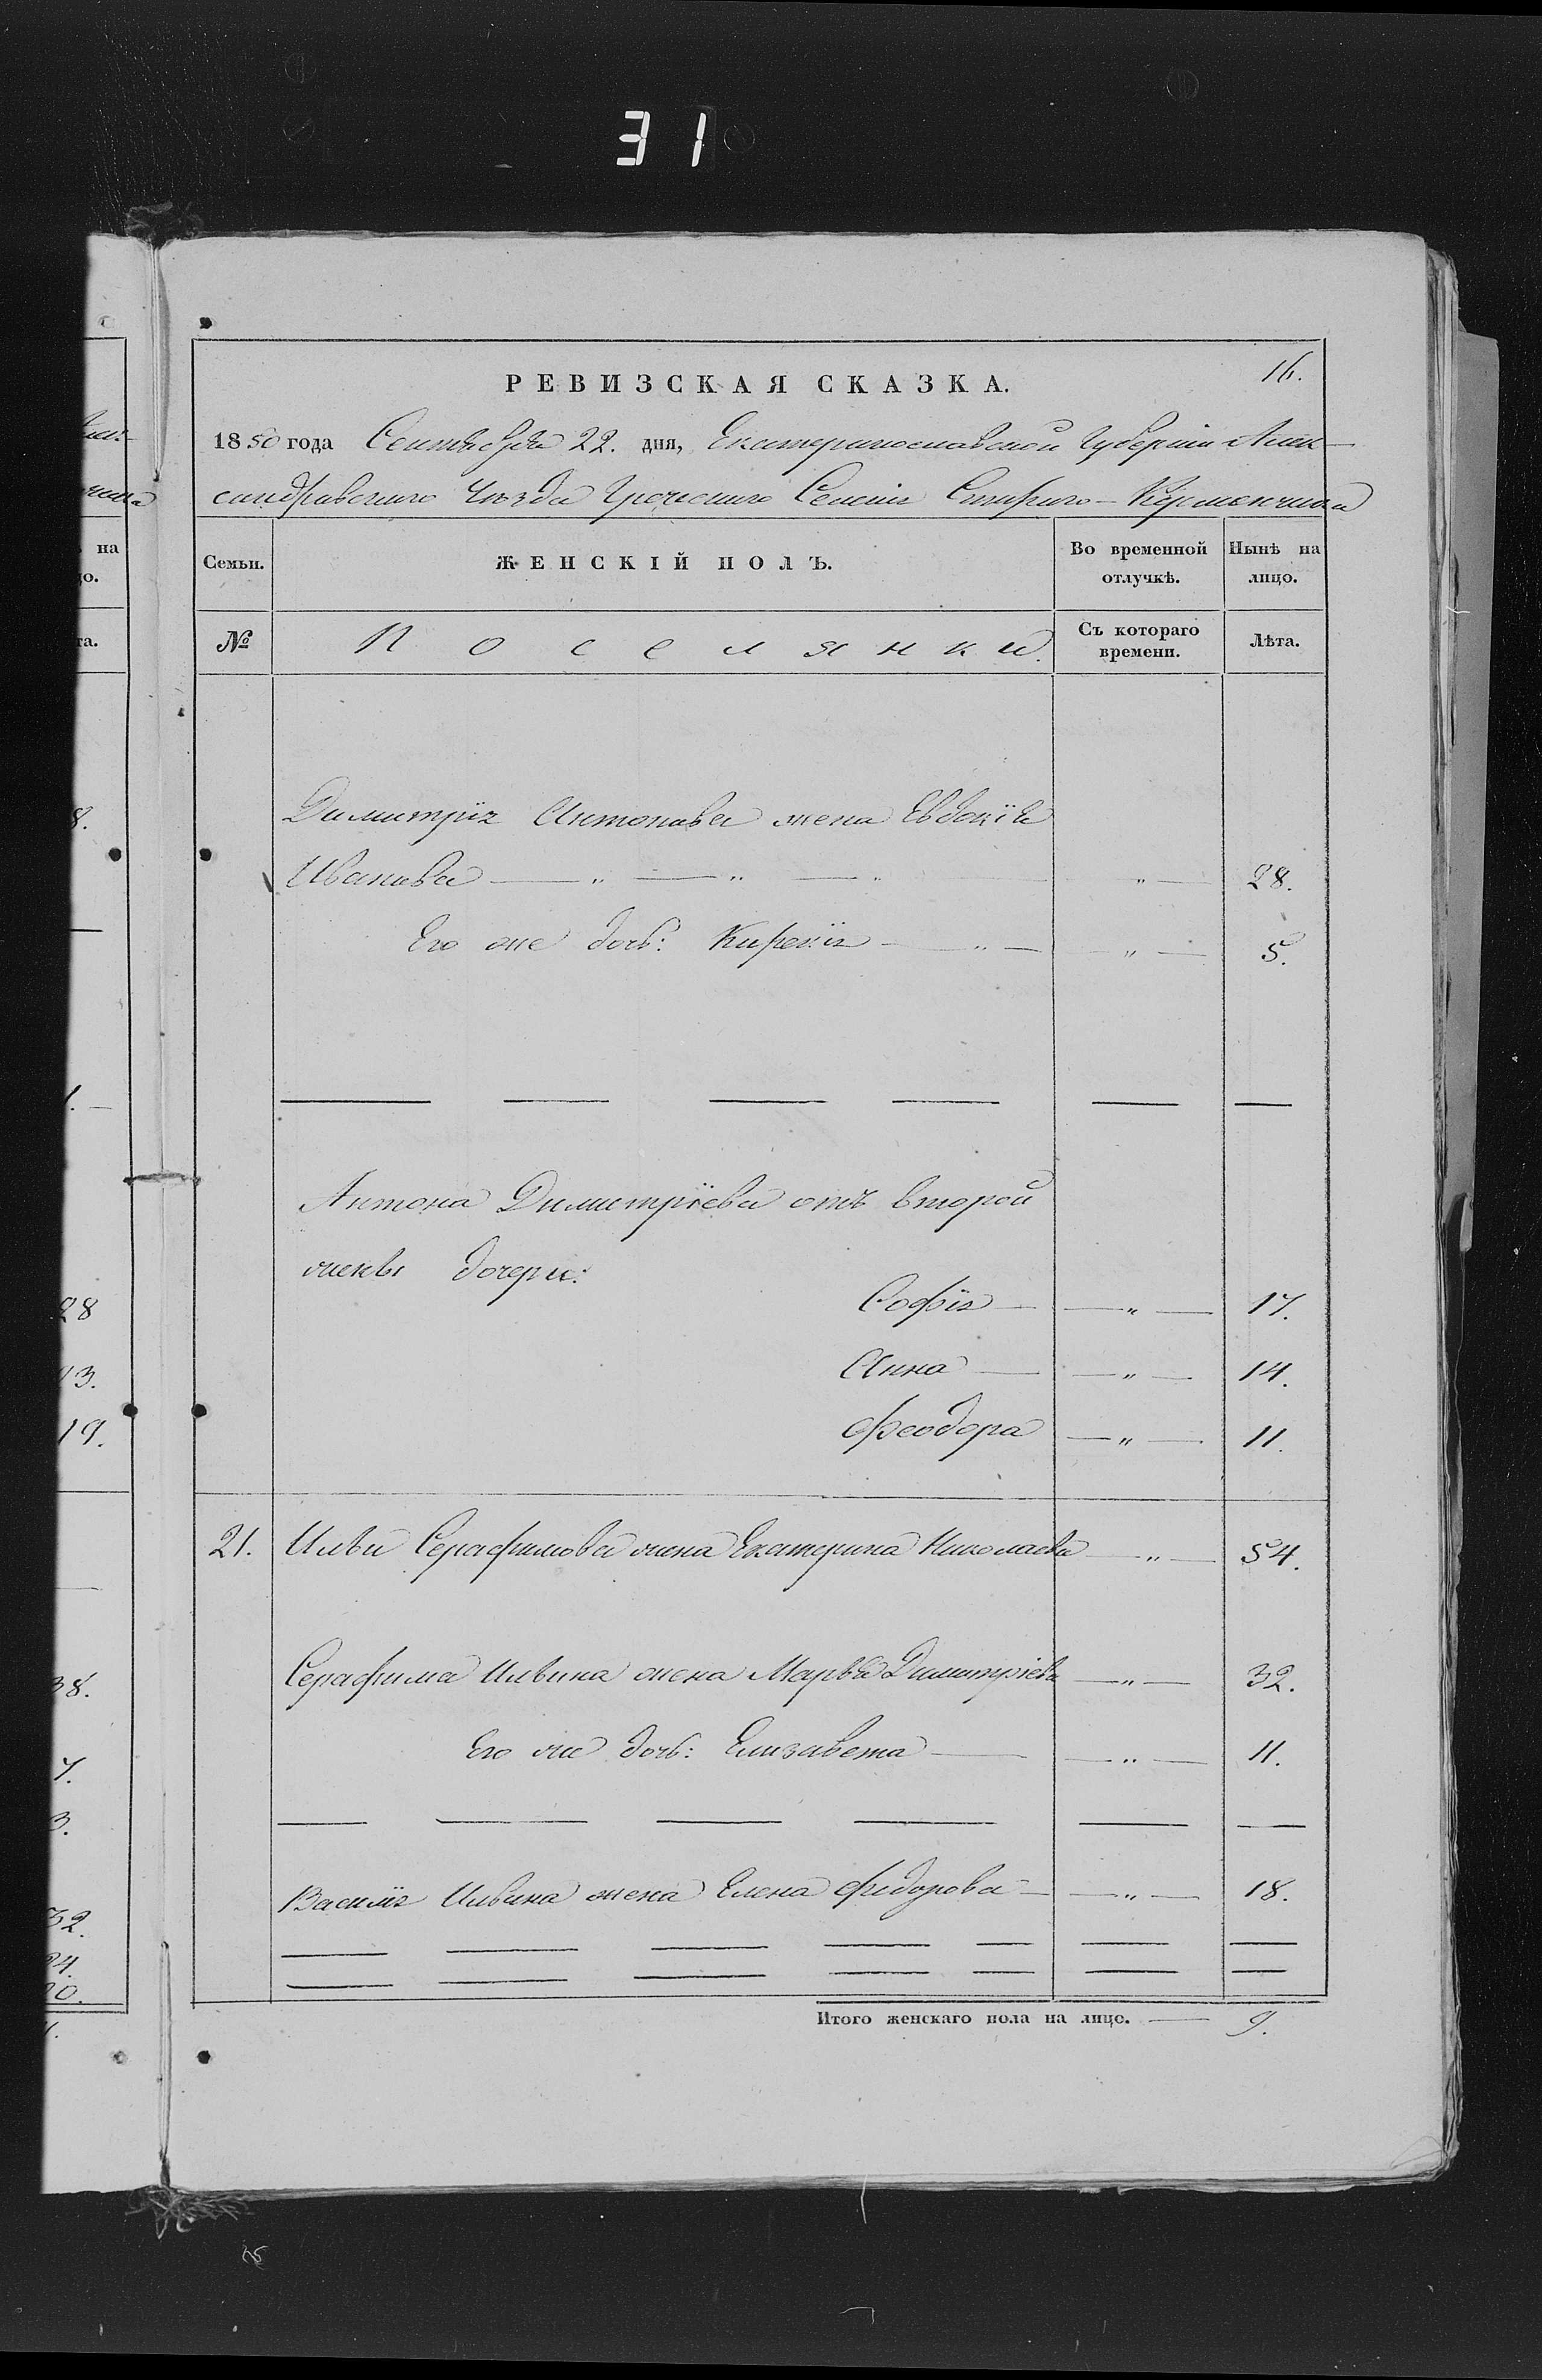 31
16.
РЕВИЗСКАЯ СКАЗКА.
1850 года Сентября 22. дня, Екатеринославской Губерніи Алек-
сандравскаго Уѣзда Греческаго Селенія Стараго-Керменчика
Семьи. ЖЕНСКІЙ ПОЛЪ. Во временной отлучкѣ. Нынѣ на лицо.
№ Поселянки. Съ котораго времени. Лѣта.
Димитрія Антонова жена Евдокія
Иванова — „ — „ — „ — „ — 28.
Его же дочь: Кирекія — „ — — „ — 5.
Антона Димитріева отъ второй
жены дочери:
Софія — — „ — 17.
Анна — — „ — 14.
Феодора — „ — 11.
21. Ильи Серафимова жена Екатерина Николаева — „ — 54.
Серафима Ильина жена Марья Димитріева — „ — 32.
Его же дочь: Елизавета — — „ — 11.
Василія Ильина жена Елена Федорова — — „ — 18.
Итого женскаго пола на лицо. — 9.
на
28
13.
19.
38.
7.
3.
32.